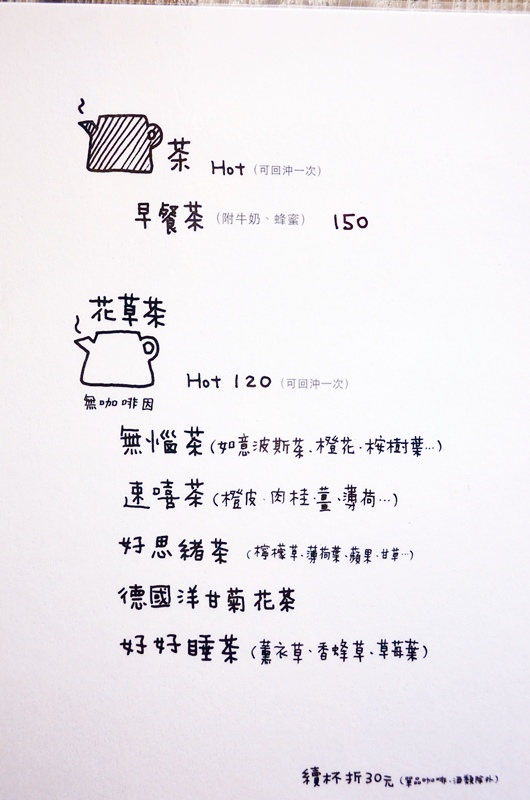 茶 Hot (可回沖一次)
早餐茶 (附牛奶、蜂蜜) 150
花草茶
Hot 120 (可回沖一次)
無咖啡因
無惱茶 (如意波斯茶、橙花、桉樹葉…)
速嘻茶 (橙皮、肉桂、薑、薄荷…)
好思緒茶 (檸檬草、薄荷葉、蘋果、甘草…)
德國洋甘菊花茶
好好睡茶 (薰衣草、香蜂草、草莓葉)
續杯折30元 (單品咖啡、酒類除外)